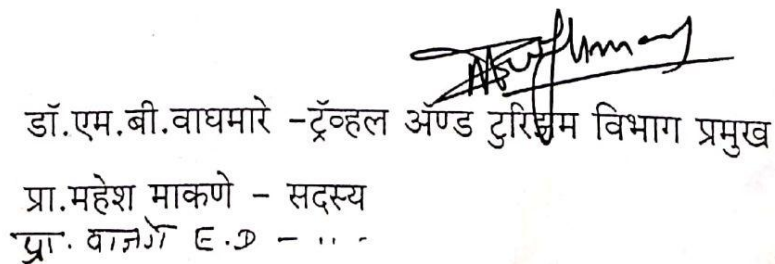 डॉ.एम.बी.वाघमारे -ट्रॅव्हल अँण्ड टुरिझम विभाग प्रमुख
प्रा.महेश माकणे - सदस्य
प्रा. E.D - .. -